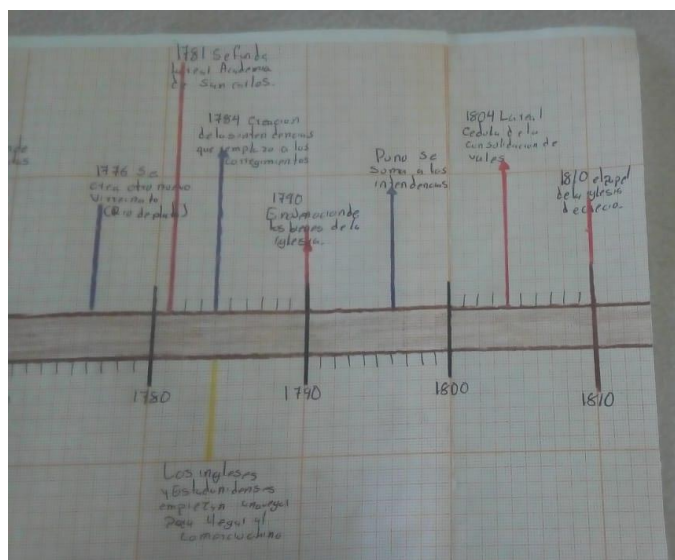 1781 Se funda
la real Academia
de San carlos.
1784 Creacion
de las intendencias
que remplazo a los
corregimientos
1776 Se
crea otro nuevo
Virreinato
(Rio de plata)
1790
Enajenacion de
los bienes de la
Iglesia.
Puno Se
Suma a las
intendencias
1804 La real
Cedula de la
consolidacion de
vales
1810 el papel
de la iglesia
decrecio.
1780
1790
1800
1810
Los ingleses
y Estadunidenses
empiezan a navegar
para llegar al